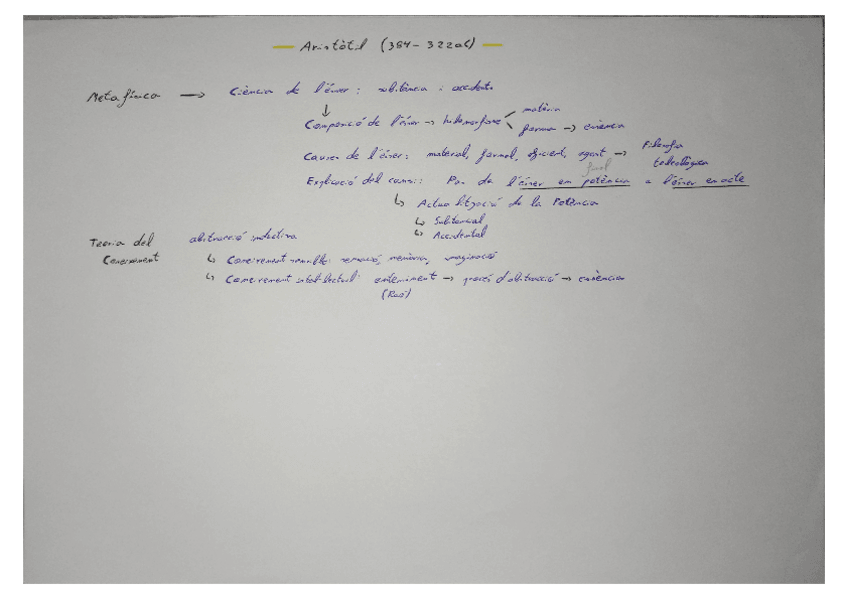 — Aristòtil (384-322aC) —
Metafísica → Ciència de l'ésser: substància i accidents
↓ matèria
Composició de l'ésser → hilemorfisme
forma → essència
Causes de l'ésser: material, formal, eficient, agent → Filosofia
final teleològica
Explicació del canvi: Pas de l'ésser en potència a l'ésser en acte
↳ Actualització de la Potència
↳ Substancial
↳ Accidental
Teoria del abstracció inductiva
Coneixement ↳ Coneixement sensible: sensació, memòria, imaginació
↳ Coneixement intel·lectual: enteniment → procés d'abstracció → essències
(Raó)